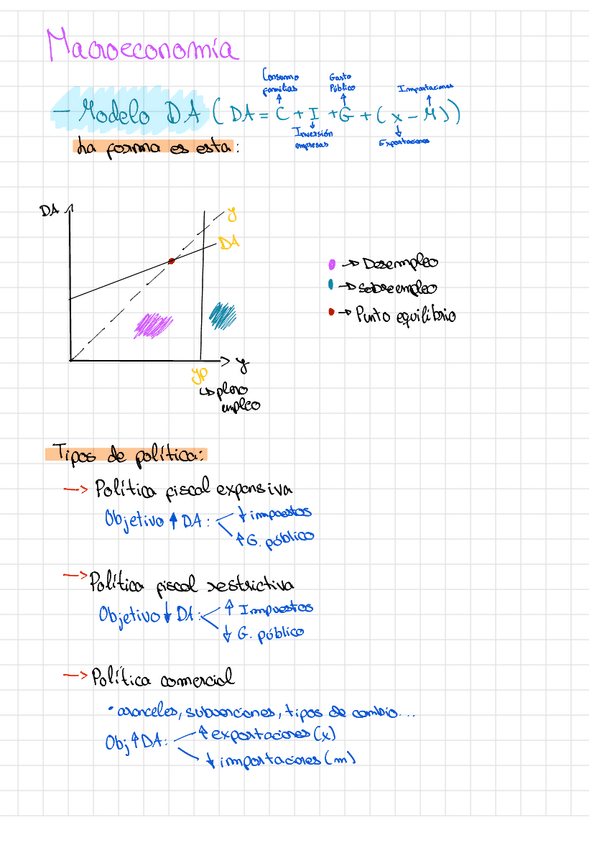 Macroeconomía
Consumo familias
Gasto Público
Importaciones
- Modelo DA (DA = C + I + G + (x - M))
Inversión empresas
Exportaciones
La forma es esta:
DA
y
DA
→ Desempleo
→ Sobreempleo
→ Punto equilibrio
y
yp
↳ pleno empleo
Tipos de política:
→ Política fiscal expansiva
Objetivo ↑ DA: ↓ impuestos
↑ G. público
→ Política fiscal restrictiva
Objetivo ↓ DA: ↑ Impuestos
↓ G. público
→ Política comercial
• aranceles, subvenciones, tipos de cambio...
Obj ↑ DA: ↑ exportaciones (x)
↓ importaciones (m)